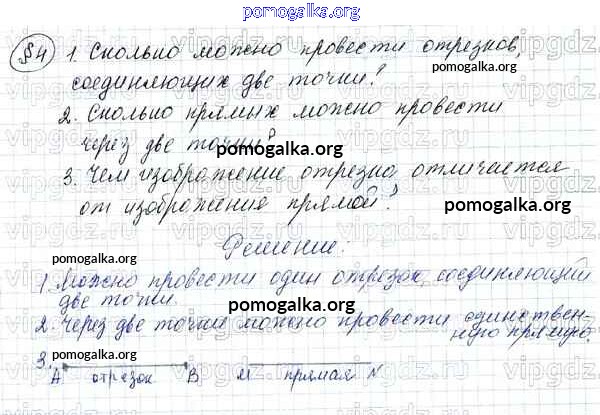 pomogalka.org
§4 1. Сколько можно провести отрезков,
соединяющих две точки?
pomogalka.org
2. Сколько прямых можно провести
через две точки?
pomogalka.org
3. Чем изображение отрезка отличается
от изображения прямой?
pomogalka.org
Решение:
1. Можно провести один отрезок, соединяющий
две точки.
pomogalka.org
2. Через две точки можно провести единствен-
ную прямую.
pomogalka.org
3.
A отрезок B M прямая N
pomogalka.org